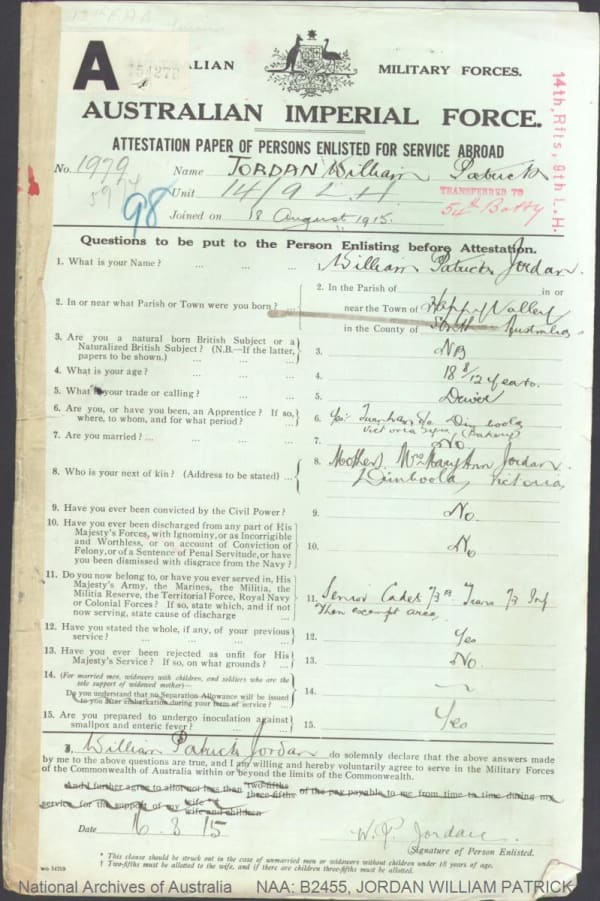 A
AUSTRALIAN MILITARY FORCES.
AUSTRALIAN IMPERIAL FORCE.
ATTESTATION PAPER OF PERSONS ENLISTED FOR SERVICE ABROAD
14th. Rfts, 9th L.H.
No. 1979 Name JORDAN William Patrick
Unit 14/9 L H
TRANSFERRED TO
54th Batty
98
Joined on 18 August 1915.
Questions to be put to the Person Enlisting before Attestation.
1. What is your Name? ... ... ... William Patrick Jordan.
2. In or near what Parish or Town were you born? ...
2. In the Parish of in or
near the Town of Happy Valley
in the County of South Australia
3. Are you a natural born British Subject or a
Naturalized British Subject? (N.B.—If the latter,
papers to be shown.) ... ...
3. NB
4. What is your age? ... ... ...
4. 18 8/12 years.
5. What is your trade or calling? ... ...
5.
6. Are you, or have you been, an Apprentice? If so,
where, to whom, and for what period? ...
6. Dimboola
Victoria
7. Are you married? ... ... ... ...
7. No
8. Who is your next of kin? (Address to be stated) ...
8. Mother. Mrs Mary Ann Jordan.
Dimboola, Victoria
9. Have you ever been convicted by the Civil Power?
9. No.
10. Have you ever been discharged from any part of His
Majesty's Forces, with Ignominy, or as Incorrigible
and Worthless, or on account of Conviction of
Felony, or of a Sentence of Penal Servitude, or have
you been dismissed with disgrace from the Navy?
10. No
11. Do you now belong to, or have you ever served in, His
Majesty's Army, the Marines, the Militia, the
Militia Reserve, the Territorial Force, Royal Navy
or Colonial Forces? If so, state which, and if not
now serving, state cause of discharge ...
11. Senior Cadet 73rd Trans 73 Inf
Then exempt area
12. Have you stated the whole, if any, of your previous
service? ... ... ... ...
12. Yes
13. Have you ever been rejected as unfit for His
Majesty's Service? If so, on what grounds? ...
13. No.
14. (For married men, widowers with children, and soldiers who are the
sole support of widowed mother)—
Do you understand that no Separation Allowance will be issued
to you after embarkation during your term of service? ...
14. ~
15. Are you prepared to undergo inoculation against
smallpox and enteric fever? ... ...
15. Yes
I, William Patrick Jordan do solemnly declare that the above answers made
by me to the above questions are true, and I am willing and hereby voluntarily agree to serve in the Military Forces
of the Commonwealth of Australia within or beyond the limits of the Commonwealth.
And I further agree to allot not less than two-fifths three-fifths of the pay payable to me from time to time during my
service for the support of my wife wife and children
Date 16. 3. 15 W. P. Jordan
(Signature of Person Enlisted.
* This clause should be struck out in the case of unmarried men or widowers without children under 18 years of age.
† Two-fifths must be allotted to the wife, and if there are children three-fifths must be allotted.
National Archives of Australia NAA: B2455, JORDAN WILLIAM PATRICK